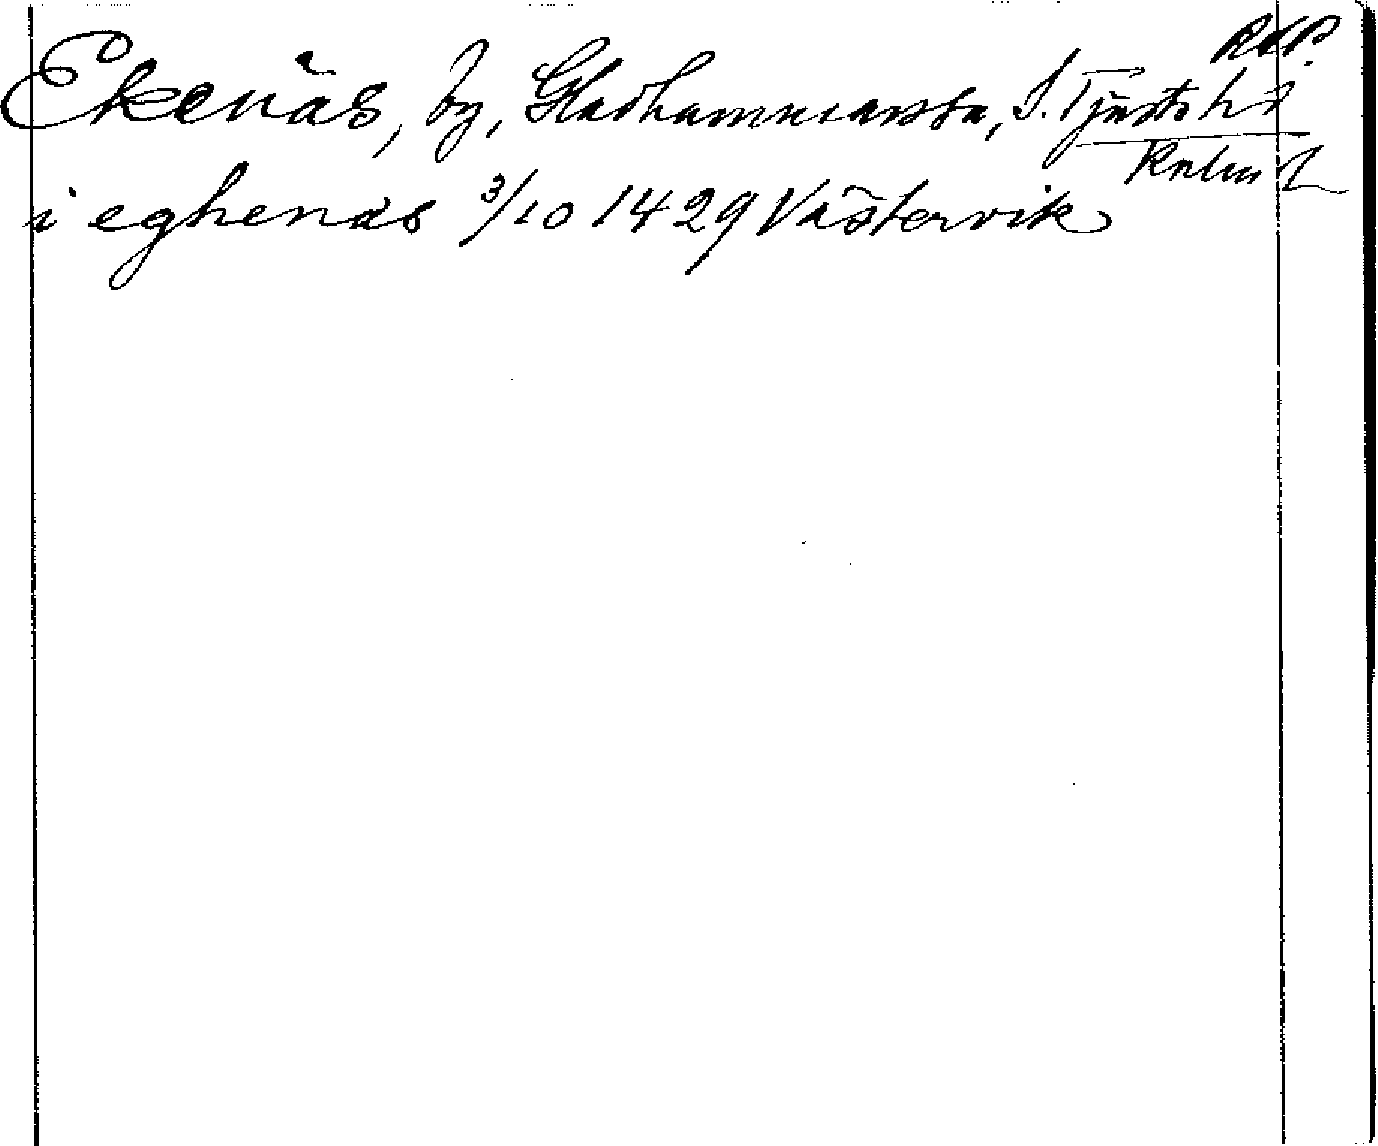 RAP.
Ekenäs, by, Gladhammars sn, S. Tjusts hd
Kalm. L
i eghenäs 3/10 1429 Västervik